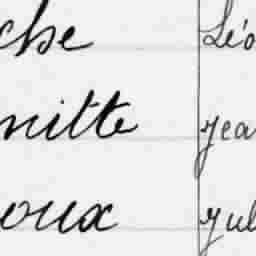 che Léo
nitte Jea
oux Jul